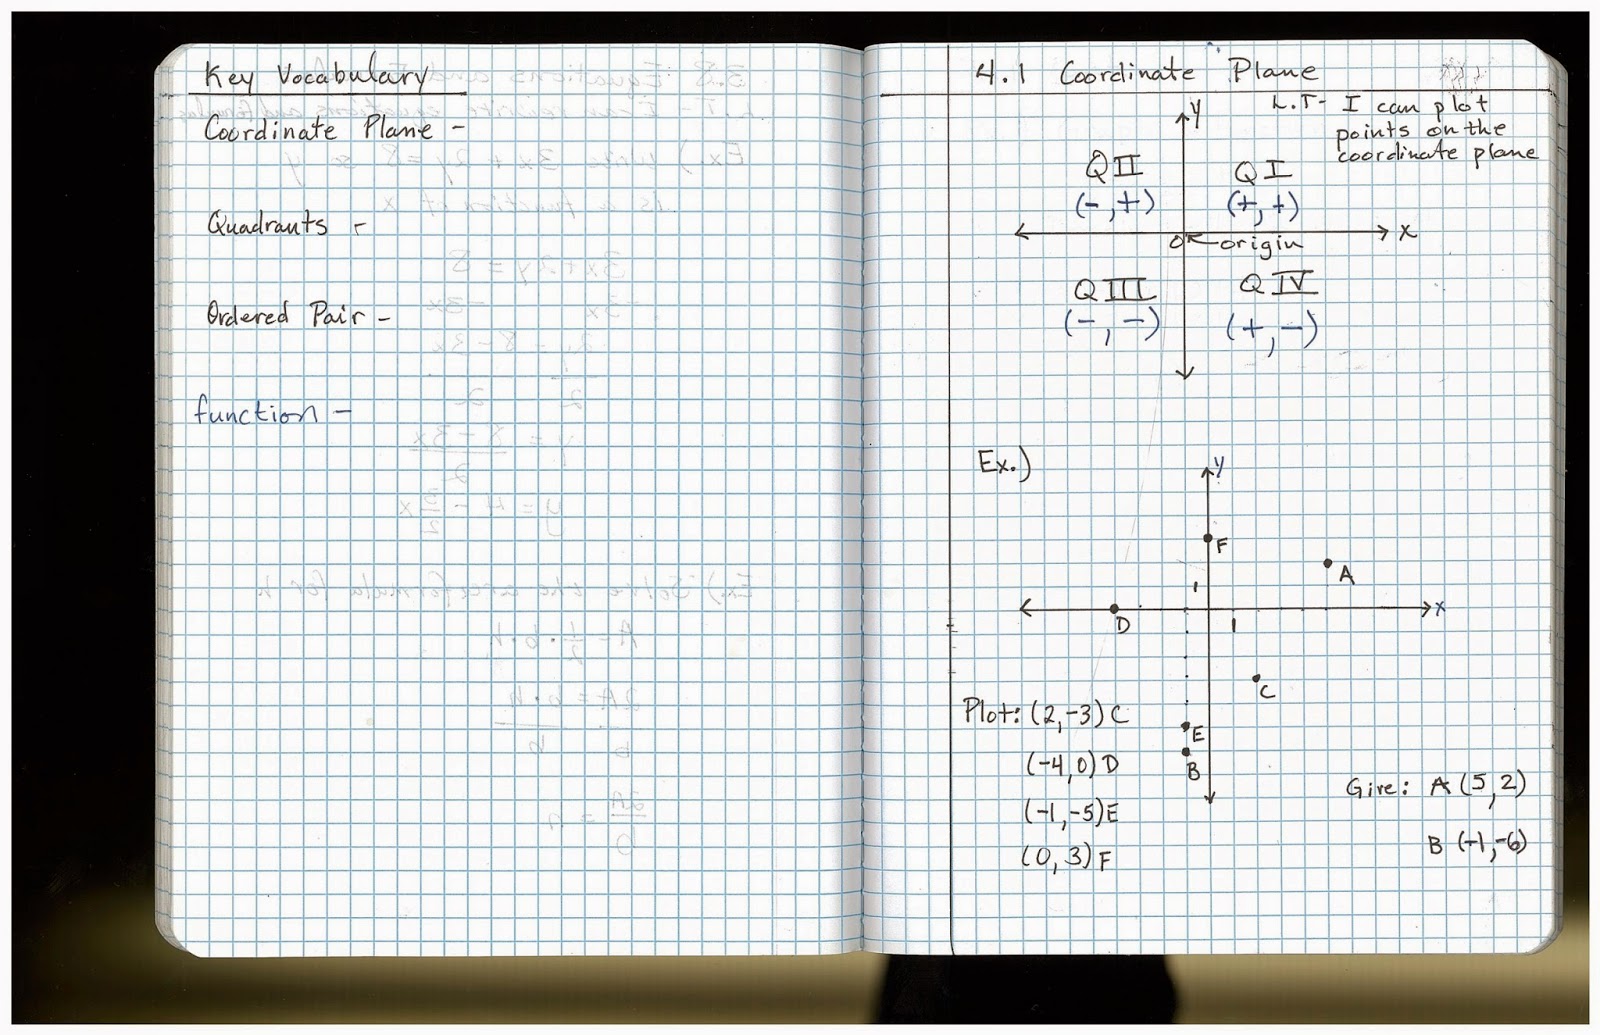 Key Vocabulary
Coordinate Plane -
Quadrants -
Ordered Pair -
function -
4.1 Coordinate Plane
L.T- I can plot
points on the
coordinate plane
y
QII
(-,+)
QI
(+,+)
x
O
origin
QIII
(-,-)
QIV
(+,-)
Ex.)
y
F
A
1
x
D
1
C
E
B
Plot: (2,-3) C
(-4,0) D
(-1,-5) E
(0,3) F
Give: A (5,2)
B (-1,-6)